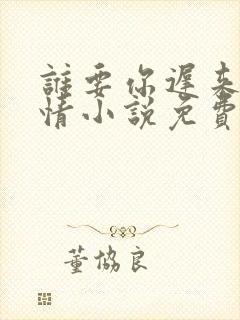 誰要你遲來
情小說免費
董協良